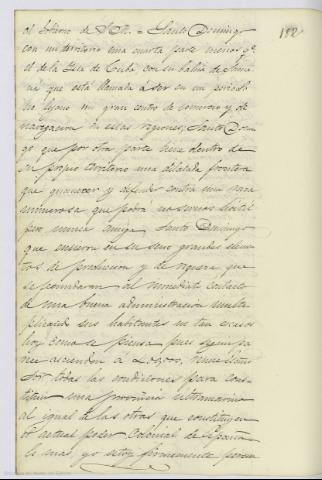 192
al Gobierno de S.M. = Santo Domingo
con un territorio una cuarta parte menor q.e
el de la Isla de Cuba, con su bahia de Sama
ná que está llamada a ser en un periodo
no lejano un gran centro de comercio y de
navegacion en estas regiones; Santo Domin
go que por otra parte tiene dentro de
su propio territorio una dilatada frontera
que guarnecer y defender contra una raza
numerosa, que podrá no sernos hostil
pero nunca amiga. Santo Domingo
que encierra en su seno grandes elemen
tos de produccion y de riqueza, que
se fecundaran al inmediato contacto
de una buena administracion multi
plicando sus habitantes no tan escasos
hoy como se piensa, pues segun pa
rece ascienden a
por todas las condiciones para cons
tituir una provincia Ultramarina
al igual de las otras que constituyen
el actual poder Colonial de España
le mas, yo estoy firmemente persua